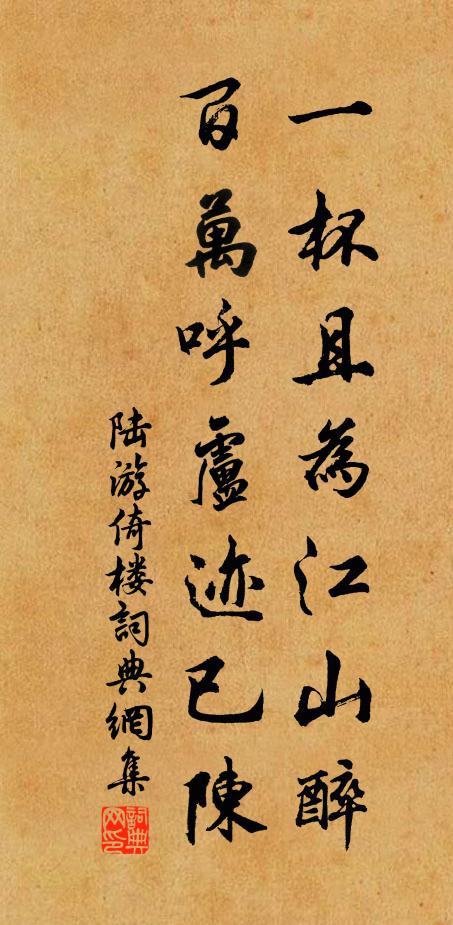 一杯且為江山醉
百萬呼盧迹已陳
陆游倚楼詞典網集
詞典网印